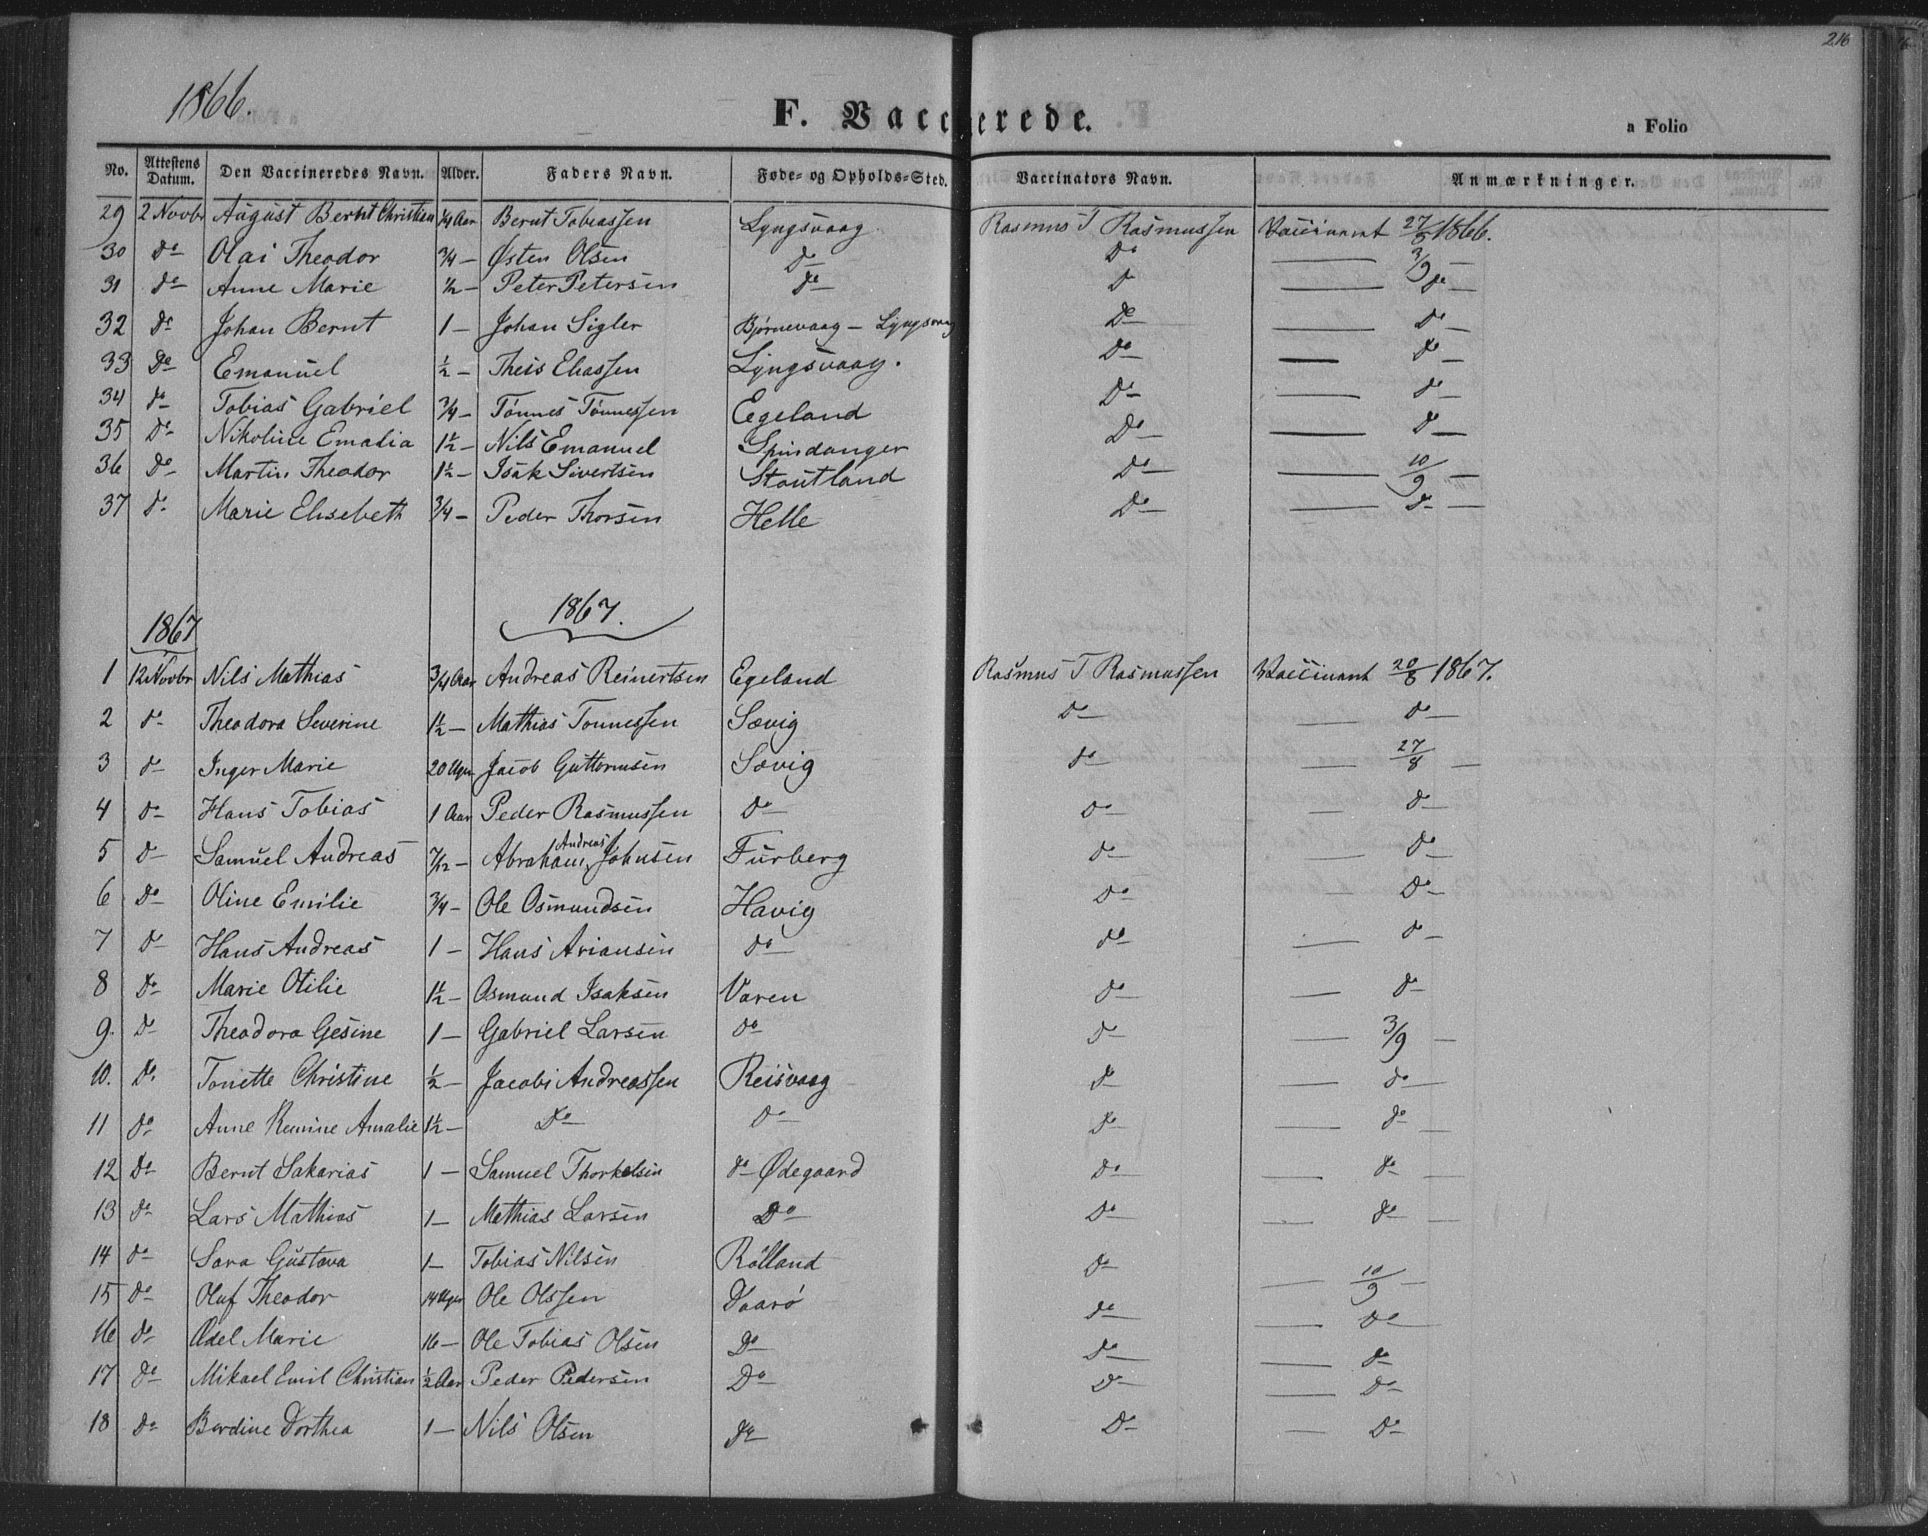 216
1866.
F. Vaccinerede.
a Folio
No. Attestens Datum. Den Vaccineredes Navn. Alder. Faders Navn. Føde- og Opholds-Sted. Vaccinators Navn. Anmærkninger.
29 2 Novbr August Bernt Christian 1/4 Aar Bernt Tobiassen Lyngsvaag Rasmus T Rasmussen Vaccineret 27/8 1866.
30 Do Olai Theodor 3/4 — Østen Olsen Do Do — 3/9 —
31 do Anne Marie 1/2 — Peter Petersen do D — do —
32 Do Johan Bernt 1 — Johan Sigler Bjørnevaag — Lyngsvaag Do — Do —
33 Do Emanuel 1/2 — Theis Eliassen Lyngsvaag. Do — do —
34 do Tobias Gabriel 3/4 — Tønnes Tønnessen Egeland Do — do —
35 Do Nikoline Emalia 1 1/2 — Nils Emanuel Spindanger Do — do —
36 Do Martin Theodor 1 1/2 — Isak Sivertsen Stoutland Do — 10/9 —
37 do Marie Elisebeth 3/4 — Peder Thorsen Helle Do — do —
1867 1867.
1 12 Novbr Nils Mathias 3/4 Aar Andreas Reinertsen Egeland Rasmus T Rasmussen Vaccinert 20/8 1867.
2 do Theodora Severine 1 1/2 — Mathias Tonnessen Sævig Do — Do —
3 do Inger Marie 20 Uger Jacob Guttormsen Sævig do — 27/8 —
4 do Hans Tobias 1 Aar Peder Rasmussen Do Do — do —
5 do Samuel Andreas 7/12 — Abraham Andreas Johnsen Furberg do — Do —
6 Do Oline Emilie 3/4 — Ole Osmundsen Havig Do — Do —
7 do Hans Andreas 1 — Hans Ariansen do do — do —
8 Do Marie Otilie 1 1/2 — Osmund Isaksen Varen do — do —
9. Do Theodora Gesine 1 — Gabriel Larsen do do — 3/9 —
10. Do Tonette Christine 1/2 — Jacobi Andreassen Reisvaag do — do —
11 do Anne Remine Amalie 1 1/2 — Do Do do — do —
12 Do Bernt Sakarias 1 — Samuel Thorkelsen do Ødegaard Do — do —
13 do Lars Mathias 1 — Mathias Larsen Do Do — do —
14 do Sara Gustava 1 — Tobias Nilsen Rølland Do — 10/9 —
15 Do Oluf Theodor 14 Uger Ole Olssen Vaarø do — Do —
16 do Adel Marie 16 — Ole Tobias Olsen Do Do — do
17 do Mikael Emil Christian 1/2 Aar Peder Pedersen Do Do — Do
18 Do Berdine Dorthea 1 — Nils Olsen do Do — Do